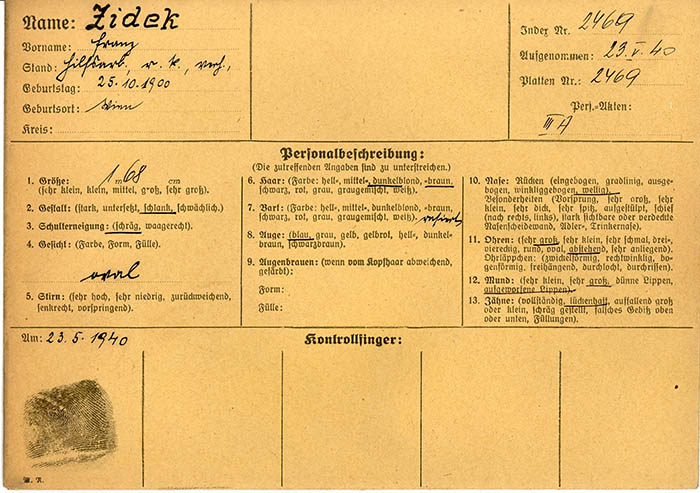 Name: Zidek
Vorname: Franz
Stand: Hilfsarb., r. k., verh.,
Geburtstag: 25.10.1900
Geburtsort: Wien
Kreis:
Index Nr. 2469
Aufgenommen: 23. V. 40
Platten Nr.: 2469
Pers.-Akten:
III A
Personalbeschreibung:
(Die zutreffenden Angaben sind zu unterstreichen.)
1. Größe: 1 m 68 cm
(sehr klein, klein, mittel, groß, sehr groß).
2. Gestalt: (stark, untersetzt, schlank, schwächlich.)
3. Schulterneigung: (schräg, waagerecht.)
4. Gesicht: (Farbe, Form, Fülle).
oval
5. Stirn: (sehr hoch, sehr niedrig, zurückweichend,
senkrecht, vorspringend).
6. Haar: (Farbe: hell-, mittel-, dunkelblond, -braun,
schwarz, rot, grau, graugemischt, weiß).
7. Bart: (Farbe: hell-, mittel-, dunkelblond, -braun,
schwarz, rot, grau, graugemischt, weiß). rasiert
8. Auge: (blau, grau, gelb, gelbrot, hell-, dunkel-
braun, schwarzbraun).
9. Augenbrauen: (wenn vom Kopfhaar abweichend,
gefärbt):
Form:
Fülle:
10. Nase: Rücken (eingebogen, gradlinig, ausge-
bogen, winkliggebogen, wellig).
Besonderheiten (Vorsprung, sehr groß, sehr
klein, sehr dick, sehr spitz, aufgestülpt, schief
(nach rechts, links), stark sichtbare oder verdeckte
Nasenscheidewand, Adler-, Trinkernase).
11. Ohren: (sehr groß, sehr klein, sehr schmal, drei-
viereckig, rund, oval, abstehend, sehr anliegend).
Ohrläppchen: (zwickelförmig, rechtwinklig, bo-
genförmig, freihängend, durchlocht, durchrissen).
12. Mund: (sehr klein, sehr groß, dünne Lippen,
aufgeworfene Lippen).
13. Zähne: (vollständig, lückenhaft, auffallend groß
oder klein, schräg gestellt, falsches Gebiß oben
oder unten, Füllungen).
Am: 23. 5. 1940
Kontrollfinger: